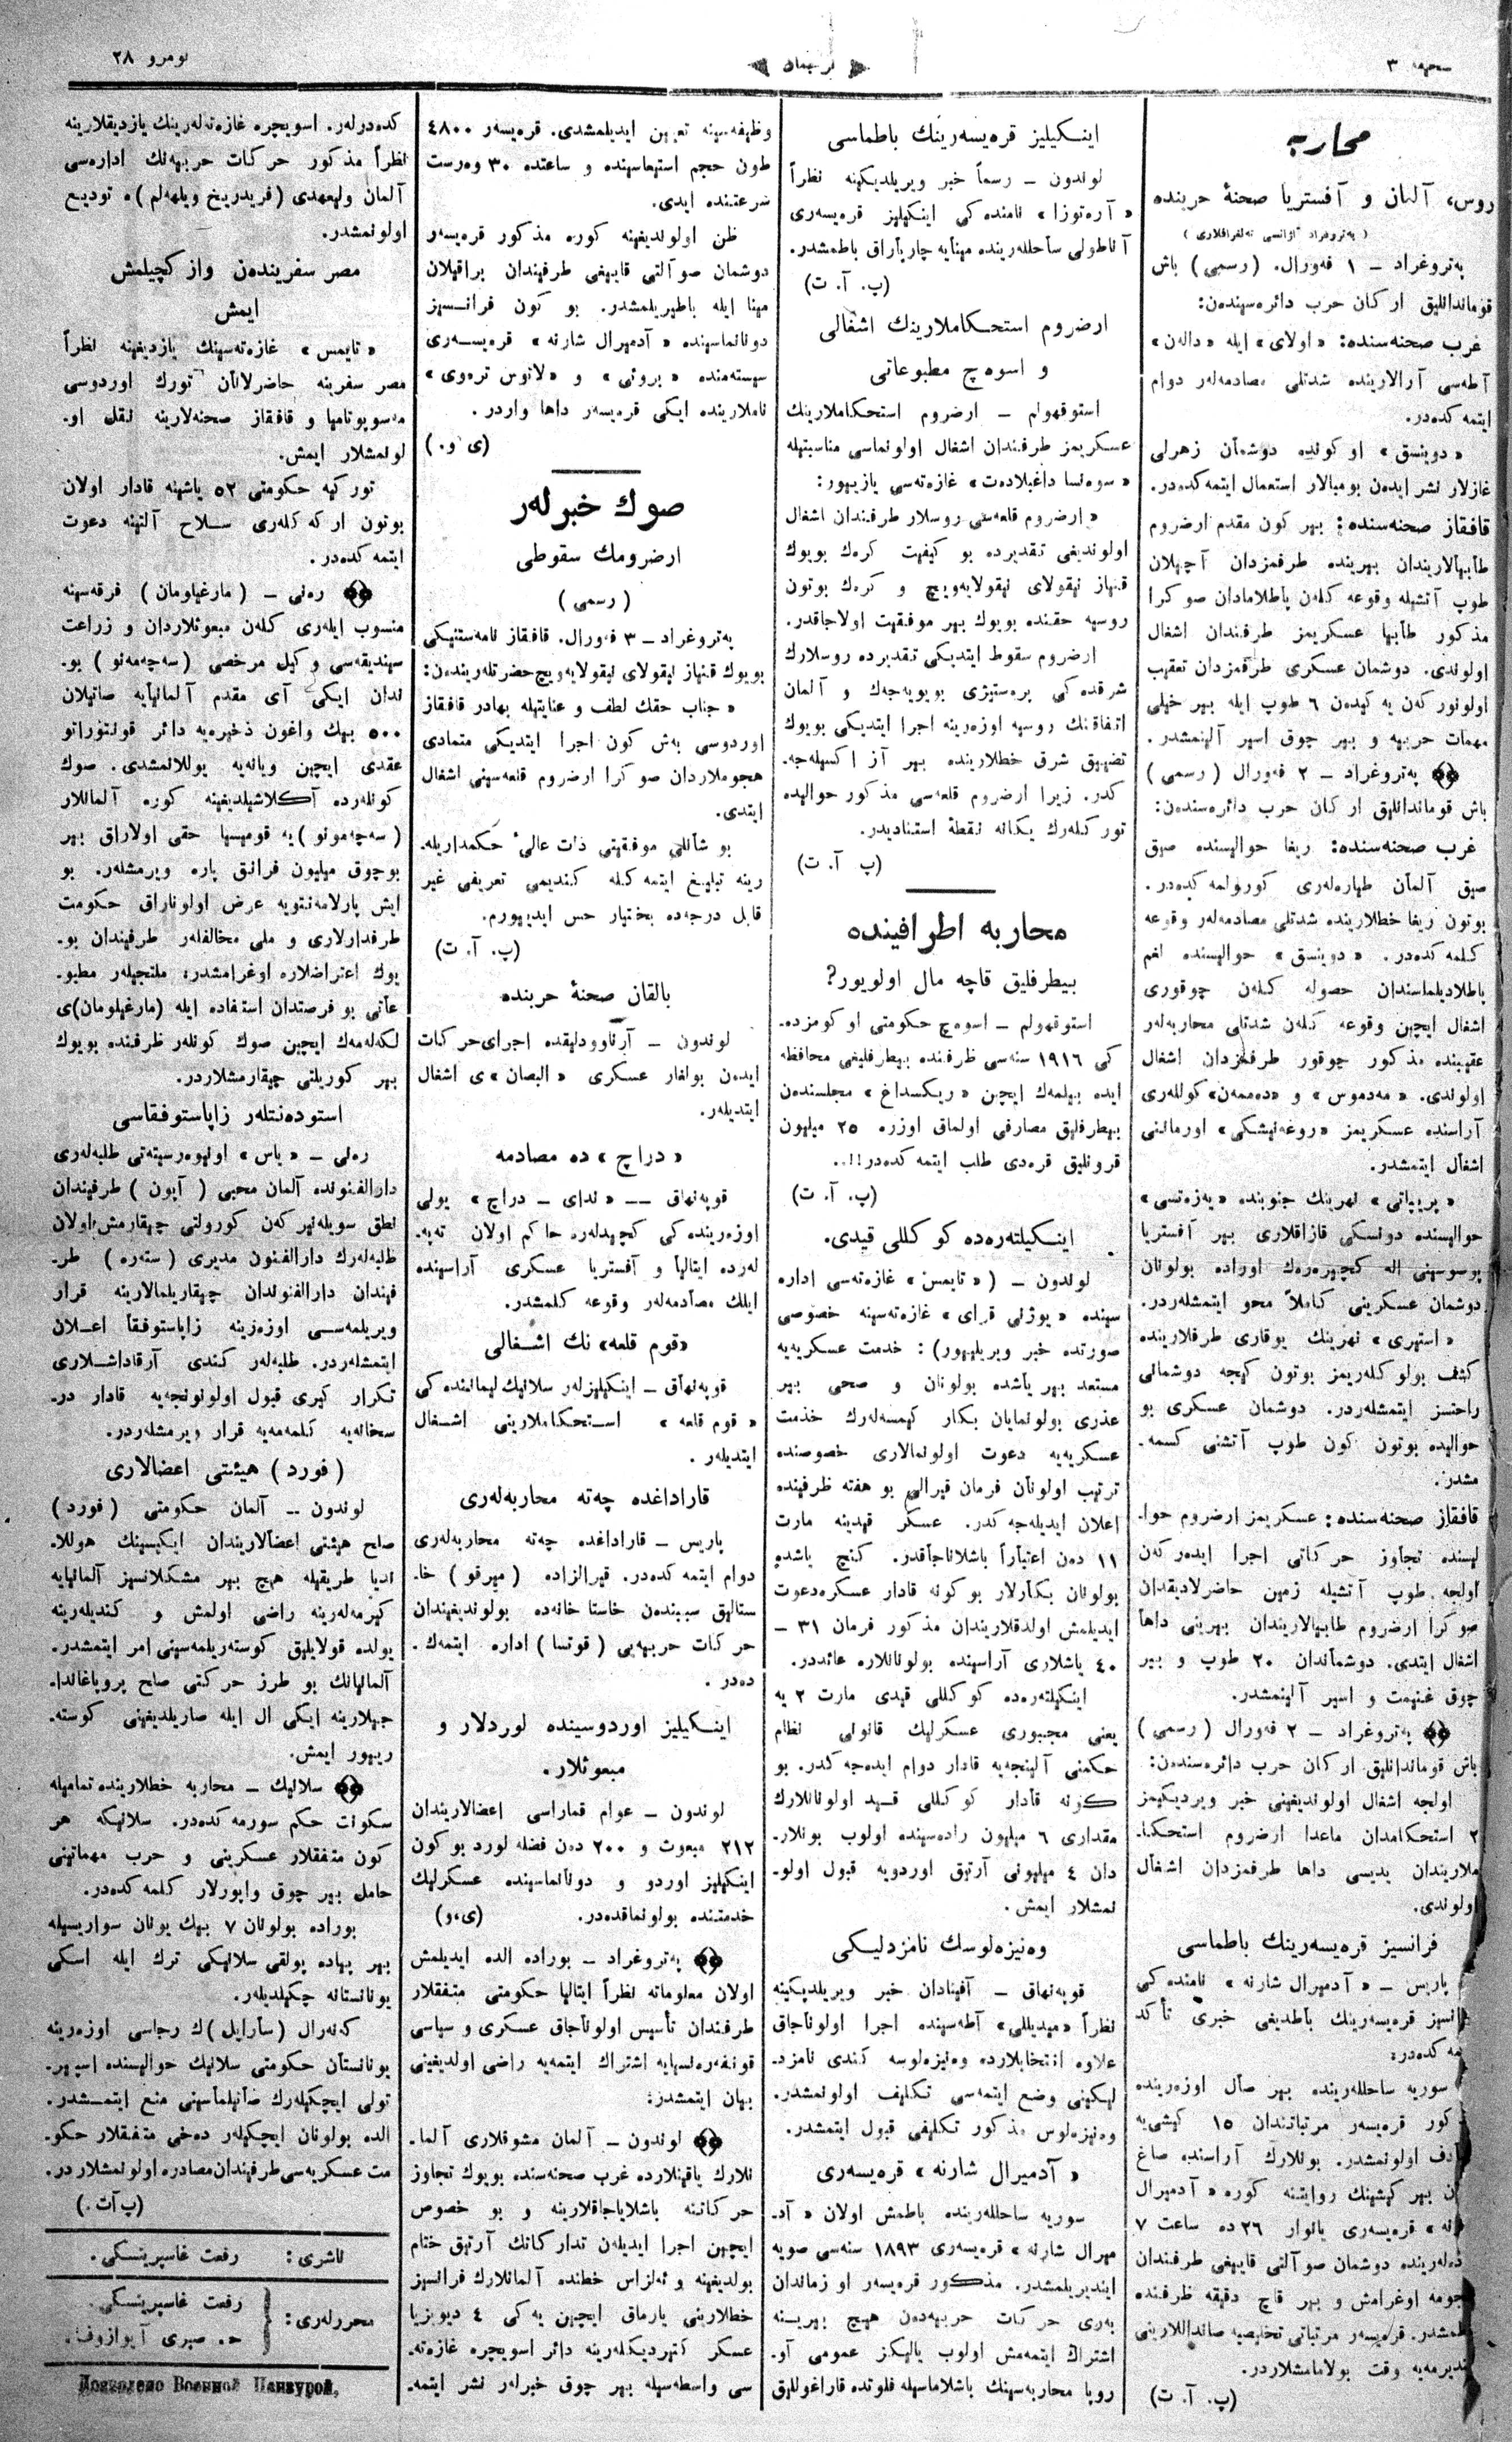 صحیفه ٣
ترجمان
نومرو ٢٨
محاربه
روس، آلمان و آفستریا صحنهٔ حربنده
( پەتروغراد آژانسی تەلغرافلاری )
پەتروغراد ـ ١ فەورال. (رسمی) باش
قوماندانلیق ارکان حرب دائرەسیندەن:
غرب صحنەسندە: «اولای» ایله «دالەن»
آطەسی آرالاریندە شدتلی مصادمەلەر دوام
ایتمەکدەدر.
« دوینسق » اوکوندە دوشمان زهرلی
غازلار نشر ایدەن بومبالار استعمال ایتمەکدەدر.
قافقاز صحنەسندە: بیر کون مقدم ارضروم
طابیالاریندان بیریندە طرفمزدان آچیلان
طوپ آتشیله وقوعه کلەن پاطلامادان صوکرا
مذکور طابیا عسکریمز طرفندان اشغال
اولوندی. دوشمان عسکری طرفمزدان تعقیب
اولونورکەن یەکیدەن ٦ طوپ ایله بیر خیلی
مهمات حربیه و بیر چوق اسیر آلینمشدر.
پەتروغراد ـ ٢ فەورال (رسمی)
باش قوماندانلیق ارکان حرب دائرەسندەن:
غرب صحنەسندە: ریغا حوالیسندە صیق
صیق آلمان طیارەلەری کورولمەکدەدر.
بوتون ریغا خطلاریندە شدتلی مصادمەلەر وقوعه
کلمەکدەدر. « دوینسق » حوالیسندە لغم
پاطلادیلماسندان حصوله کلەن چوقوری
اشغال ایچین وقوعه کلەن شدتلی محاربەلەر
عقبیندە مذکور چوقور طرفمزدان اشغال
اولوندی. «مەدموس» و «دەممەن» کوللەری
آراسندە عسکریمز «روغەنیشکی» اورمانینی
اشغال ایتمشدر.
« پریپاتی » نهرینك جنوبندە «یەزەتسی»
حوالیسندە دونسکی قازاقلاری بیر آفستریا
پوسوسینی اله کچیرەرەك اورادە بولونان
دوشمان عسکرینی کاملاً محو ایتمشلەردر.
« استیری » نهرینك یوقاری طرفلاریندە
کشف بولوکلەریمز بوتون کیجه دوشمانی
راحتسز ایتمشلەردر. دوشمان عسکری بو
حوالیدە بوتون کون طوپ آتشنی کسمەـ
مشدر.
قافقاز صحنەسندە: عسکریمز ارضروم حواـ
لیسندە تجاوز حرکاتی اجرا ایدەرکەن
اولجه طوپ آتشیله زمین حاضرلادیقدان
صوکرا ارضروم طابیالاریندان بیرینی داها
اشغال ایتدی. دوشماندان ٢٠ طوپ و بیر
چوق غنیمت و اسیر آلینمشدر.
پەتروغراد ـ ٢ فەورال (رسمی)
باش قوماندانلیق ارکان حرب دائرەسندەن:
اولجه اشغال اولوندیغینی خبر ویردیکیمز
٢ استحکامدان ماعدا ارضروم استحکاـ
ملاریندان یدیسی داها طرفمزدان اشغال
اولوندی.
فرانسیز قرەیسەرینك باطماسی
پاریس ـ «آدمیرال شارنه» نامندەکی
انسیز قرەیسەرینك باطدیغی خبری تأکد
مەکدەدر:
سوریه ساحللەریندە بیر صال اوزەریندە
کور قرەیسەر مرتباتندان ١٥ کیشی‌یه
ادف اولونمشدر. بونلارك آراسندە صاغ
ان بیر کیشینك روایتنه کورە «آدمیرال
رنه» قرەیسەری یانوار ٢٦دە ساعت ٧
دەلەریندە دوشمان صوآلتی قایغی طرفندان
جومه اوغرامش و بیر قاچ دقیقه ظرفندە
طمشدر. قرەیسەر مرتباتی تخلیصیه صانداللارینی
ندیرمەیه وقت بولامامشلاردر.
(پ. آ. ت)
اینکیلیز قرەیسەرینك باطماسی
لوندون ـ رسماً خبر ویریلدیکینه نظراً
« آرەتوزا » نامندەکی اینکیلیز قرەیسەری
آناطولی ساحللەریندە مینایه چارپاراق باطمشدر.
(پ. آ. ت)
ارضروم استحکاملارینك اشغالی
و اسوەچ مطبوعاتی
استوقهولم ـ ارضروم استحکاملارینك
عسکریمز طرفندان اشغال اولونماسی مناسبتیله
« سوەنسا داغبلادەت » غازەتەسی یازیور:
« ارضروم قلعەسی روسلار طرفندان اشغال
اولوندیغی تقدیردە بو کیفیت کرەك بویوك
قنیاز نیقولای نیقولایەویچ و کرەك بوتون
روسیه حقندە بویوك بیر موفقیت اولاجاقدر.
ارضروم سقوط ایتدیکی تقدیردە روسلارك
شرقدەکی پرەستیژی بویویەجەك و آلمان
اتفاقنك روسیه اوزەرینه اجرا ایتدیکی بویوك
تضییق شرق خطلاریندە بیر آز اکسیلەجەـ
کدر. زیرا ارضروم قلعەسی مذکور حوالیدە
تورکلەرك یکانه نقطهٔ استنادیدر.
(پ آ. ت)
محاربه اطرافیندە
بیطرفلیق قاچه مال اولویور؟
استوقهولم ـ اسوەچ حکومتی اوکومزدەـ
کی ١٩١٦ سنەسی ظرفندە بیطرفلیغی محافظه
ایدە بیلمەك ایچین «ریکسداغ» مجلسندەن
بیطرفلیق مصارفی اولماق اوزرە ٢٥ میلیون
قرونلیق قرەدی طلب ایتمەکدەدر!!..
(پ. آ. ت)
اینکیلتەرەدە کوکللی قیدی.
لوندون ـ («تایمس» غازەتەسی ادارە
سیندە «یوژنی قرای» غازەتەسینه خصوصی
صورتدە خبر ویریلیور): خدمت عسکریه‌یه
مستعد بیر یاشدە بولونان و صحی بیر
عذری بولونمایان بکار کیمسەلەرك خدمت
عسکریه‌یه دعوت اولونمالاری خصوصندە
ترتیب اولونان فرمان قیرالی بو هفته ظرفیندە
اعلان ایدیلەجەکدر. عسکر قیدینه مارت
١١ دەن اعتباراً باشلاناجاقدر. کنچ یاشدە
بولونان بکارلار بو کونه قادار عسکرەدعوت
ایدیلمش اولدقلاریندان مذکور فرمان ٣١ ـ
٤٠ یاشلاری آراسیندە بولونانلارە عائددر.
اینکیلتەرەدە کوکللی قیدی مارت ٢ یه
یعنی مجبوری عسکرلیك قانونی نظام
حکمنی آلینجەیه قادار دوام ایدەجەکدر. بو
کونه قادار کوکللی قید اولونانلارك
مقداری ٦ میلیون رادەسیندە اولوب بونلارـ
دان ٤ میلیونی آرتیق اوردویه قبول اولوـ
نمشلار ایمش.
وەنیزەلوسك نامزدلیکی
قوپەنهاق ـ آفینادان خبر ویریلدیکینه
نظراً «میدیللی» آطەسیندە اجرا اولوناجاق
علاوە انتخابلاردە وەنیزەلوسه کندی نامزدـ
لیکینی وضع ایتمەسی تکلیف اولونمشدر.
وەنیزەلوس مذکور تکلیفی قبول ایتمشدر.
« آدمیرال شارنه » قرەیسەری
سوریه ساحللەریندە باطمش اولان «آدـ
میرال شارنه» قرەیسەری ١٨٩٣ سنەسی صویه
ایندیریلمشدر. مذکور قرەیسەر او زماندان
بەری حرکات حربیەدەن هیچ بیرینه
اشتراك ایتمەمش اولوب یالیکز عمومی آوـ
روپا محاربەسینك باشلاماسیله فلوتدە قاراغوللیق
وظیفەسینه تعیین ایدیلمشدی. قرەیسەر ٤٨٠٠
طون حجم استیعاسیندە و ساعتدە ٣٠ وەرست
سرعتندە ایدی.
ظن اولوندیغینه کورە مذکور قرەیسەر
دوشمان صوآلتی قایغی طرفیندان براقیلان
مینا ایله باطیریلمشدر. بو کون فرانسیز
دونانماسیندە «آدمیرال شارنه» قرەیسەری
سیستەمندە «بروئی» و «لاتوس ترەوی»
ناملاریندە ایکی قرەیسەر داها واردر.
(ی و.)
صوك خبرلەر
ارضرومك سقوطی
( رسمی )
پەتروغراد ـ ٣ فەورال. قافقاز نامەستنیکی
بویوك قنیاز نیقولای نیقولایەویچ حضرتلەریندەن:
« جناب حقك لطف و عنایتیله بهادر قافقاز
اوردوسی بەش کون اجرا ایتدیکی متمادی
هجوملاردان صوکرا ارضروم قلعەسینی اشغال
ایتدی.
بو شانلی موفقیتی ذات عالیٔ حکمداریلەـ
رینه تبلیغ ایتمەکله کندیمی تعریفی غیر
قابل درجەدە بختیار حس ایدیورم.
(پ. آ. ت)
بالقان صحنهٔ حربندە
لوندون ـ آرناوودلیقدە اجرای حرکات
ایدەن بولغار عسکری «البصان»ی اشغال
ایتدیلەر.
« دراچ » دە مصادمه
قوپەنهاق ــ «ندای ـ دراچ» یولی
اوزەریندەکی کچیدلەرە حاکم اولان تەپەـ
لەردە ایتالیا و آفستریا عسکری آراسیندە
ایلك مصادمەلەر وقوعه کلمشدر.
«قوم قلعه» نك اشغالی
قوپەنهاق ـ اینکیلیزلەر سلانیك لیمانندەکی
« قوم قلعه » استحکاملارینی اشغال
ایتدیلەر.
قاراداغدە چەته محاربەلەری
پاریس ـ قاراداغدە چەته محاربەلەری
دوام ایتمەکدەدر. قیرالزادە (میرقو) خاـ
ستالیق سببندەن خاستا خانەدە بولوندیغیندان
حرکات حربیه‌یی (قوتسا) ادارە ایتمەك.
دەدر.
اینکیلیز اوردوسیندە لوردلار و
مبعوثلار.
لوندون ـ عوام قماراسی اعضالاریندان
٢١٢ مبعوث و ٢٠٠ دەن فضله لورد بو کون
اینکیلیز اوردو و دونانماسیندە عسکرلیك
خدمتندە بولونماقدەدر. (ی،و)
پەتروغراد ـ بورادە الدە ایدیلمش
اولان معلوماته نظراً ایتالیا حکومتی متفقلار
طرفندان تأسیس اولوناجاق عسکری و سیاسی
قونفەرەنسیایه اشتراك ایتمەیه راضی اولدیغینی
بیان ایتمشدر:
لوندون ـ آلمان مشوقلاری آلماـ
نلارك یاقینلاردە غرب صحنەسندە بویوك تجاوز
حرکاتنه باشلایاجاقلارینه و بو خصوص
ایچین اجرا ایدیلەن تدارکاتك آرتیق ختام
بولدیغینه و ئەلزاس خطندە آلمانلارك فرانسیز
خطلارینی یارماق ایچین یەکی ٤ دیویزیا
عسکر کتیردیکلەرینه دائر اسویچرە غازەتەـ
سی واسطەسیله بیر چوق خبرلەر نشر ایتمەـ
کدەدرلەر. اسویچرە غازەتەلەرینك یازدیقلارینه
نظراً مذکور حرکات حربیەنك ادارەسی
آلمان ولیعهدی (فریدریخ ویلهەلم)ە تودیع
اولونمشدر.
مصر سفریندەن واز کچیلمش
ایمش
« تایمس » غازەتەسینك یازدیغینه نظراً
مصر سفرینه حاضرلانان تورك اوردوسی
مەسوپوتامیا و قافقاز صحنەلارینه نقل اوـ
لونمشلار ایمش.
تورکیه حکومتی ٥٢ یاشینه قادار اولان
بوتون ارکەکلەری سلاح آلتینه دعوت
ایتمەکدەدر.
رەنی ـ (مارغیلومان) فرقەسینه
منسوب ایلەری کلەن مبعوثلاردان و زراعت
سیندیقەسی وکیل مرخصی (سەچەمەنو) بوـ
ندان ایکی آی مقدم آلمانیایه صاتیلان
٥٠٠ بیك واغون ذخیرەیه دائر قونتوراتو
عقدی ایچین ویانەیه یوللانمشدی. صوك
کونلەردە آکلاشیلدیغینه کورە آلمانلار
(سەچەمونو)یه قومیسیا حقی اولاراق بیر
بوچوق میلیون فرانق پارە ویرمشلەر. بو
ایش پارلامەنتویه عرض اولوناراق حکومت
طرفدارلاری و ملی مخالفلەر طرفیندان بوـ
یوك اعتراضلارە اوغرامشدر: ملتجیلەر مطبوـ
عاتی بو فرصتدان استفادە ایله (مارغیلومان)ی
لکەلەمەك ایچین صوك کونلەر ظرفندە بویوك
بیر کورولتی چیقارمشلاردر.
استودەنتلەر زاپاستوفقاسی
رەنی ـ «یاس» اونیوەرسیتەتی طلبەلەری
دارالفنوندە آلمان محبی (آیون) طرفیندان
نطق سویلەنیرکەن کورولتی چیقارمش اولان
طلبەلەرك دارالفنون مدیری (ستەرە) طرـ
فیندان دارالفنوندان چیقاریلمالارینه قرار
ویریلمەسی اوزەزینه زاپاستوفقا اعلان
ایتمشلەردر. طلبەلەر کندی آرقاداشلاری
تکرار کیری قبول اولونونجەیه قادار درـ
سخانەیه کلمەمەیه قرار ویرمشلەردر.
(فورد) هیئتی اعضالاری
لوندون ــ آلمان حکومتی (فورد)
صلح هیئتی اعضالاریندان ایکیسینك هوللاـ
ندیا طریقیله هیچ بیر مشکلاتسیز آلمانیایه
کیرمەلەرینه راضی اولمش و کندیلەرینه
یولدە قولایلیق کوستەریلمەسینی امر ایتمشدر.
آلمانیانك بو طرز حرکتی صلح پروپاغانداـ
جیلارینه ایکی ال ایله صاریلدیغینی کوستەـ
ریور ایمش.
سلانیك ـ محاربه خطلاریندە تمامیله
سکونت حکم سورمەکدەدر. سلانیکه هر
کون متفقلار عسکرینی و حرب مهماتینی
حامل بیر چوق واپورلار کلمەکدەدر.
بورادە بولونان ٧ بیك یونان سواریسیله
بیر پیادە پولقی سلانیکی ترك ایله اسکی
یونانستانه چکیلدیلەر.
کەنەرال (سارایل)ك رجاسی اوزەرینه
یونانستان حکومتی سلانیك حوالیسندە اسپیرـ
تولی ایچکیلەرك صاتیلماسینی منع ایتمشدر.
الدە بولونان ایچکیلەر دەخی متفقلار حکوـ
مت عسکریەسی طرفیندان مصادرە اولونمشلاردر.
(پ آت.)
ناشری: رفعت غاسپرینسکی.
محررلەری: رفعت غاسپرینسکی.
ح. صبری آیوازوف.
Дозволено Военной Цензурой.